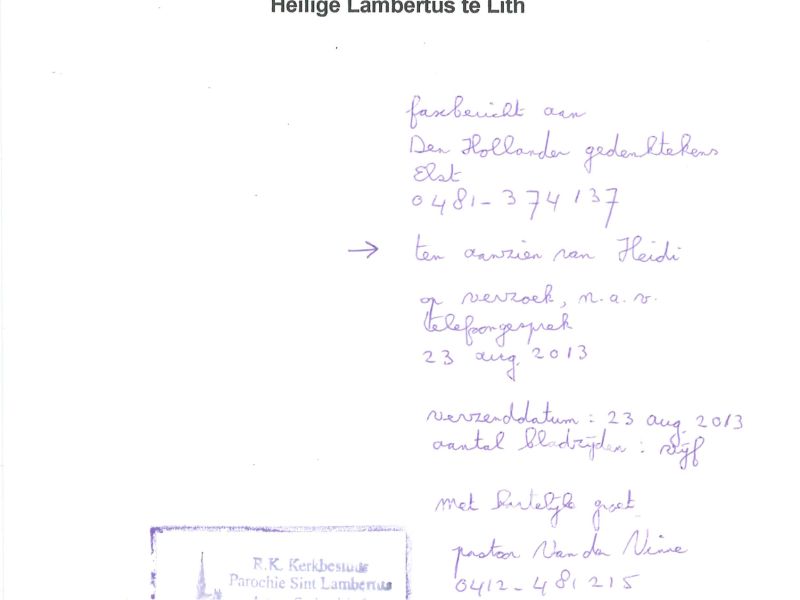 Heilige Lambertus te Lith
faxbericht aan
Den Hollander gedenktekens
Elst
0481-374137
→ ten aanzien van Heidi
op verzoek, n.a.v.
telefoongesprek
23 aug. 2013
verzenddatum : 23 aug. 2013
aantal bladzijden : vijf
met hartelijke groet
pastoor Van der
0412-481215
R.K. Kerkbestuur
Parochie Sint Lambertus